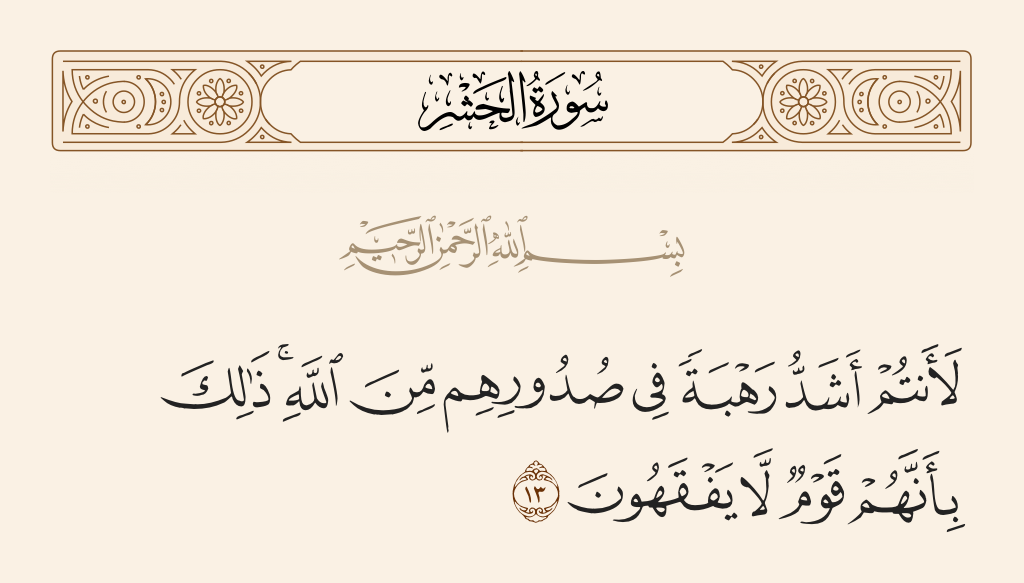 سُورَةُ الحَشْرِ
بِسْمِ ٱللَّهِ ٱلرَّحْمَٰنِ ٱلرَّحِيمِ
لَأَنتُمْ أَشَدُّ رَهْبَةً فِى صُدُورِهِم مِّنَ ٱللَّهِ ۚ ذَٰلِكَ
بِأَنَّهُمْ قَوْمٌ لَّا يَفْقَهُونَ ١٣